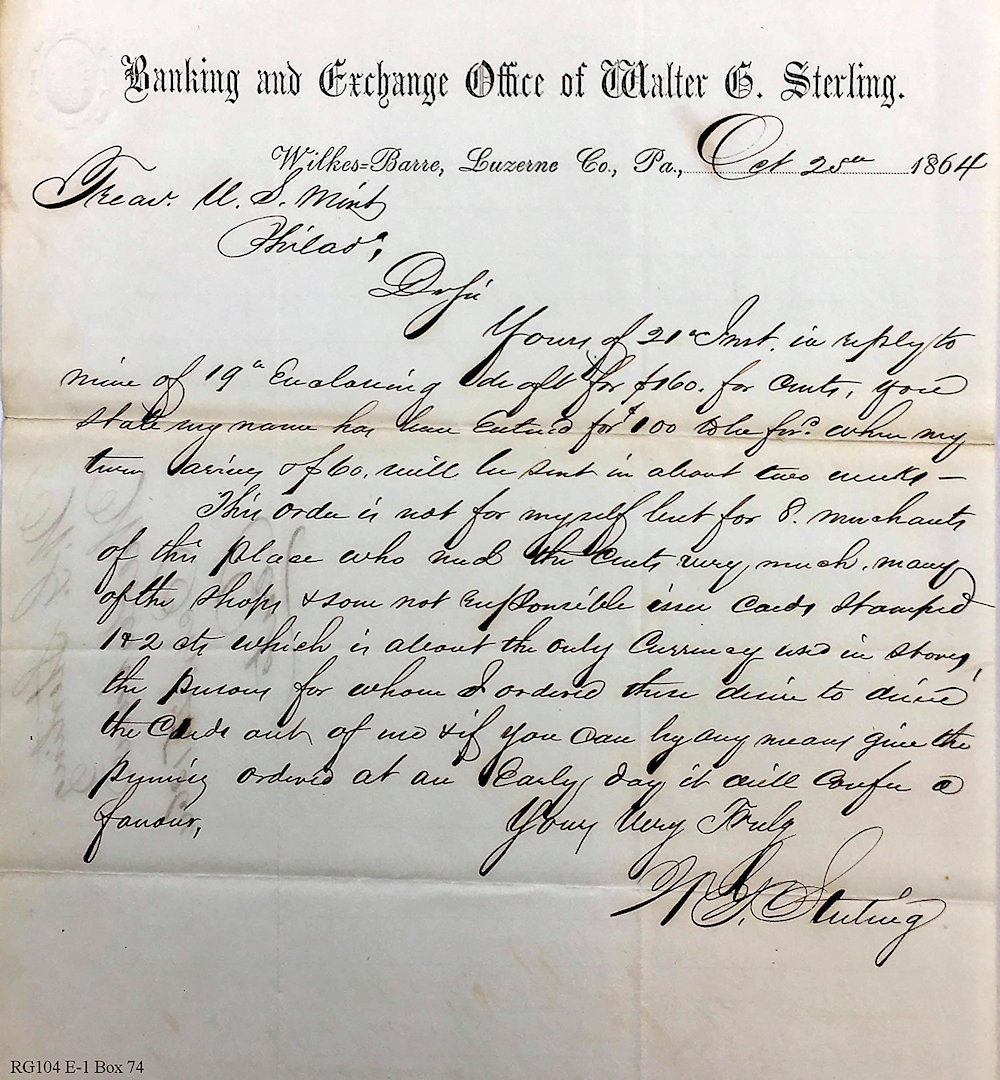 Banking and Exchange Office of Walter G. Sterling.
Wilkes=Barre, Luzerne Co., Pa., Oct 25th 1864
Treas. U. S. Mint
Philada,
Dr Sir
Yours of 21st Inst. in reply to
mine of 19th Enclosing draft for $160. for Cents, you
state my name has been Entered for $100 to be for'd when my
turn arrives & $60. will be sent in about two weeks —
This order is not for myself but for 8. merchants
of this place who need the Cents very much. many
of the shops & some not responsible issue Cards Stamped
1 & 2 cts which is about the only Currency used in stores,
the persons for whom I ordered these desire to drive
the Cards out of use & if you can by any means give the
pennies ordered at an Early day it will confer a
favour,
Yours Very Truly
W. G. Sterling
RG104 E-1 Box 74